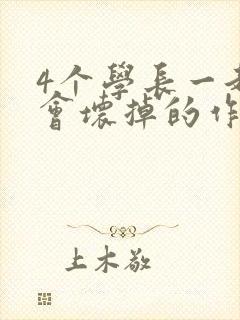 4个學長一
會壞掉的作
上木敬